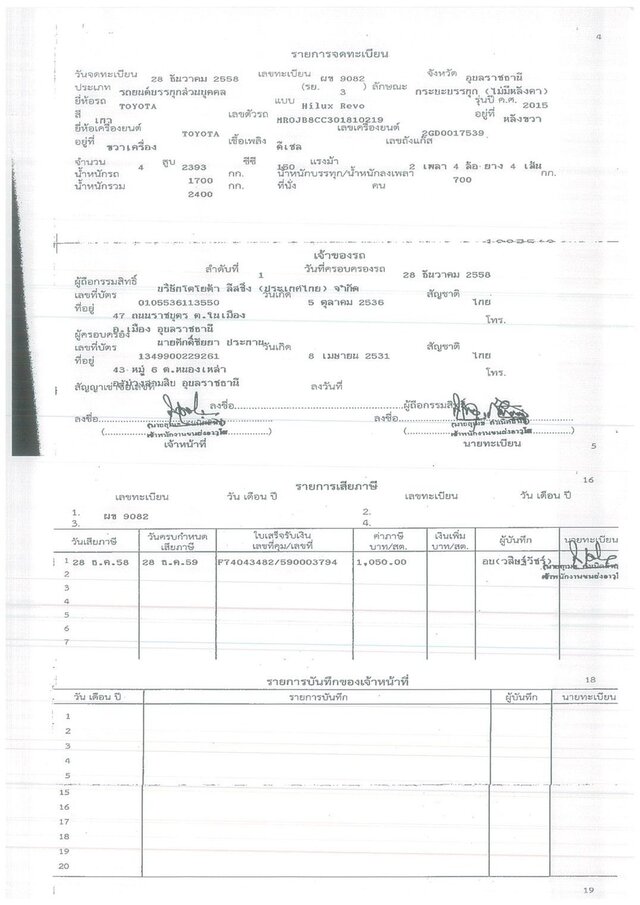 4
รายการจดทะเบียน
วันจดทะเบียน 28 ธันวาคม 2558 เลขทะเบียน ผข 9082 จังหวัด อุบลราชธานี
ประเภท รถยนต์บรรทุกส่วนบุคคล (รย. 3 ) ลักษณะ กระบะบรรทุก (ไม่มีหลังคา)
ยี่ห้อรถ TOYOTA แบบ Hilux Revo รุ่นปี ค.ศ. 2015
สี เทา เลขตัวรถ MR0JB8CC301810219 อยู่ที่ หลังขวา
ยี่ห้อเครื่องยนต์ TOYOTA เลขเครื่องยนต์ 2GD0017539
อยู่ที่ ขวาเครื่อง เชื้อเพลิง ดีเซล เลขถังแก๊ส
จำนวน 4 สูบ 2393 ซีซี 150 แรงม้า 2 เพลา 4 ล้อ ยาง 4 เส้น
น้ำหนักรถ 1700 กก. น้ำหนักบรรทุก/น้ำหนักลงเพลา 700 กก.
น้ำหนักรวม 2400 กก. ที่นั่ง คน
เจ้าของรถ
ลำดับที่ 1 วันที่ครอบครองรถ 28 ธันวาคม 2558
ผู้ถือกรรมสิทธิ์ บริษัทโตโยต้า ลีสซิ่ง (ประเทศไทย) จำกัด
เลขที่บัตร 0105536113550 วันเกิด 5 ตุลาคม 2536 สัญชาติ ไทย
ที่อยู่ 47 ถนนราชบุตร ต.ในเมือง โทร.
อ.เมือง อุบลราชธานี
ผู้ครอบครอง นายศักดิ์ชัยา ประกาน
เลขที่บัตร 1349900229261 วันเกิด 8 เมษายน 2531 สัญชาติ ไทย
ที่อยู่ 43 หมู่ 6 ต.หนองเหล่า โทร.
อ.ม่วงสามสิบ อุบลราชธานี
สัญญาเช่าซื้อเลขที่ ลงวันที่
ลงชื่อ ผู้ถือกรรมสิทธิ์
ลงชื่อ ลงชื่อ
เจ้าพนักงานขนส่งอาวุโส เจ้าพนักงานขนส่งอาวุโส
เจ้าหน้าที่ นายทะเบียน
5
16
รายการเสียภาษี
เลขทะเบียน วัน เดือน ปี เลขทะเบียน วัน เดือน ปี
1. ผข 9082 2.
3. 4.
วันเสียภาษี วันครบกำหนดเสียภาษี ใบเสร็จรับเงิน เลขที่คุม/เลขที่ ค่าภาษี บาท/สต. เงินเพิ่ม บาท/สต. ผู้บันทึก นายทะเบียน
1 28 ธ.ค.58 28 ธ.ค.59 F74043482/590003794 1,050.00
เจ้าพนักงานขนส่งอาวุโส
2
3
4
5
6
7
18
รายการบันทึกของเจ้าหน้าที่
วัน เดือน ปี รายการบันทึก ผู้บันทึก นายทะเบียน
1
2
3
4
5
15
16
17
18
19
20
19